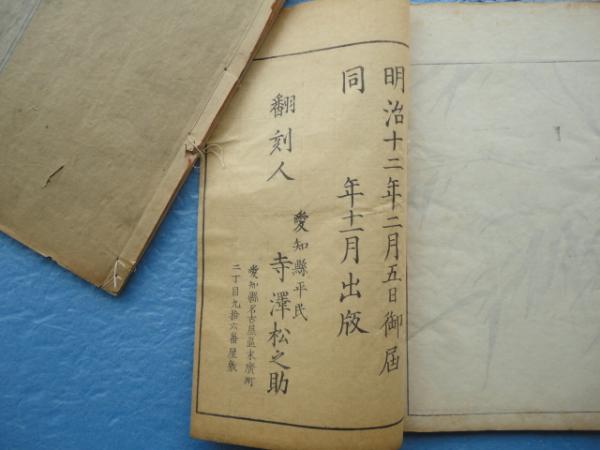 明治十二年二月五日御届
同　年十一月出版
翻刻人
愛知縣平民
寺澤松之助
愛知縣名古屋區末廣町
二丁目九拾六番屋敷